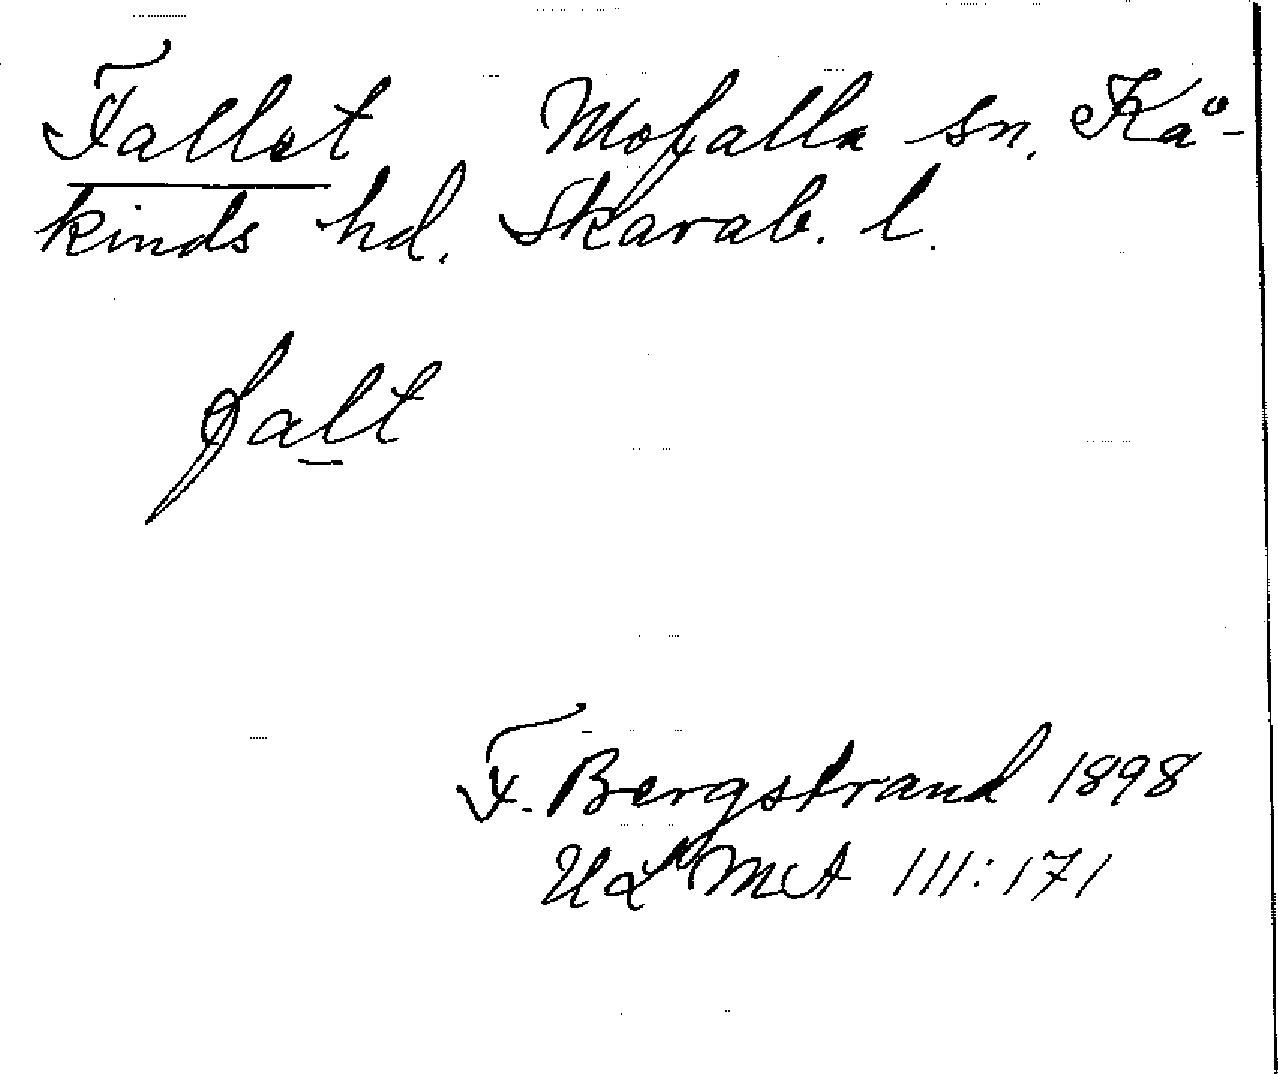 Fallet Mofalla sn. Kå-
kinds hd. Skarab. l.
falt
F. Bergstrand 1898
ULMA 111:171